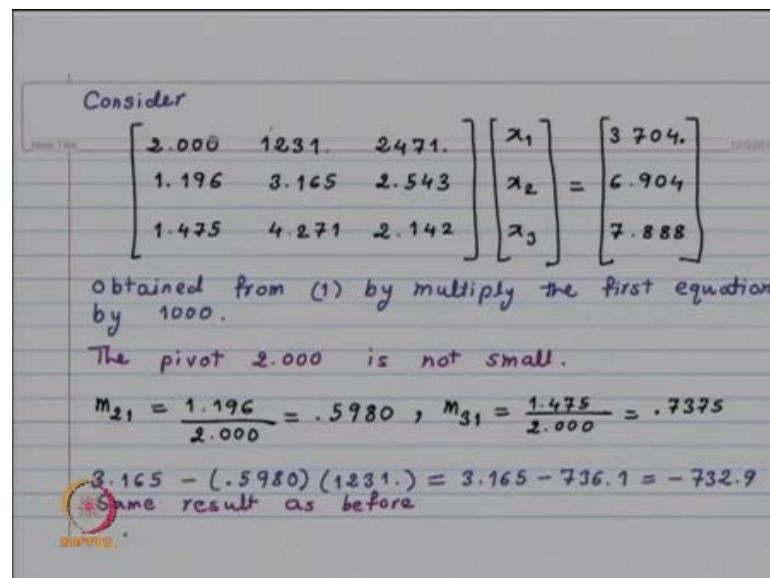 Consider
[2.000 1231. 2471.] [x₁] = [3 704.]
[1.196 3.165 2.543] [x₂] = [6.904]
[1.475 4.271 2.142] [x₃] = [7.888]
obtained from (1) by multiply the first equation
by 1000.
The pivot 2.000 is not small.
m₂₁ = 1.196/2.000 = .5980 , m₃₁ = 1.475/2.000 = .7375
3.165 - (.5980) (1231.) = 3.165 - 736.1 = - 732.9
Same result as before